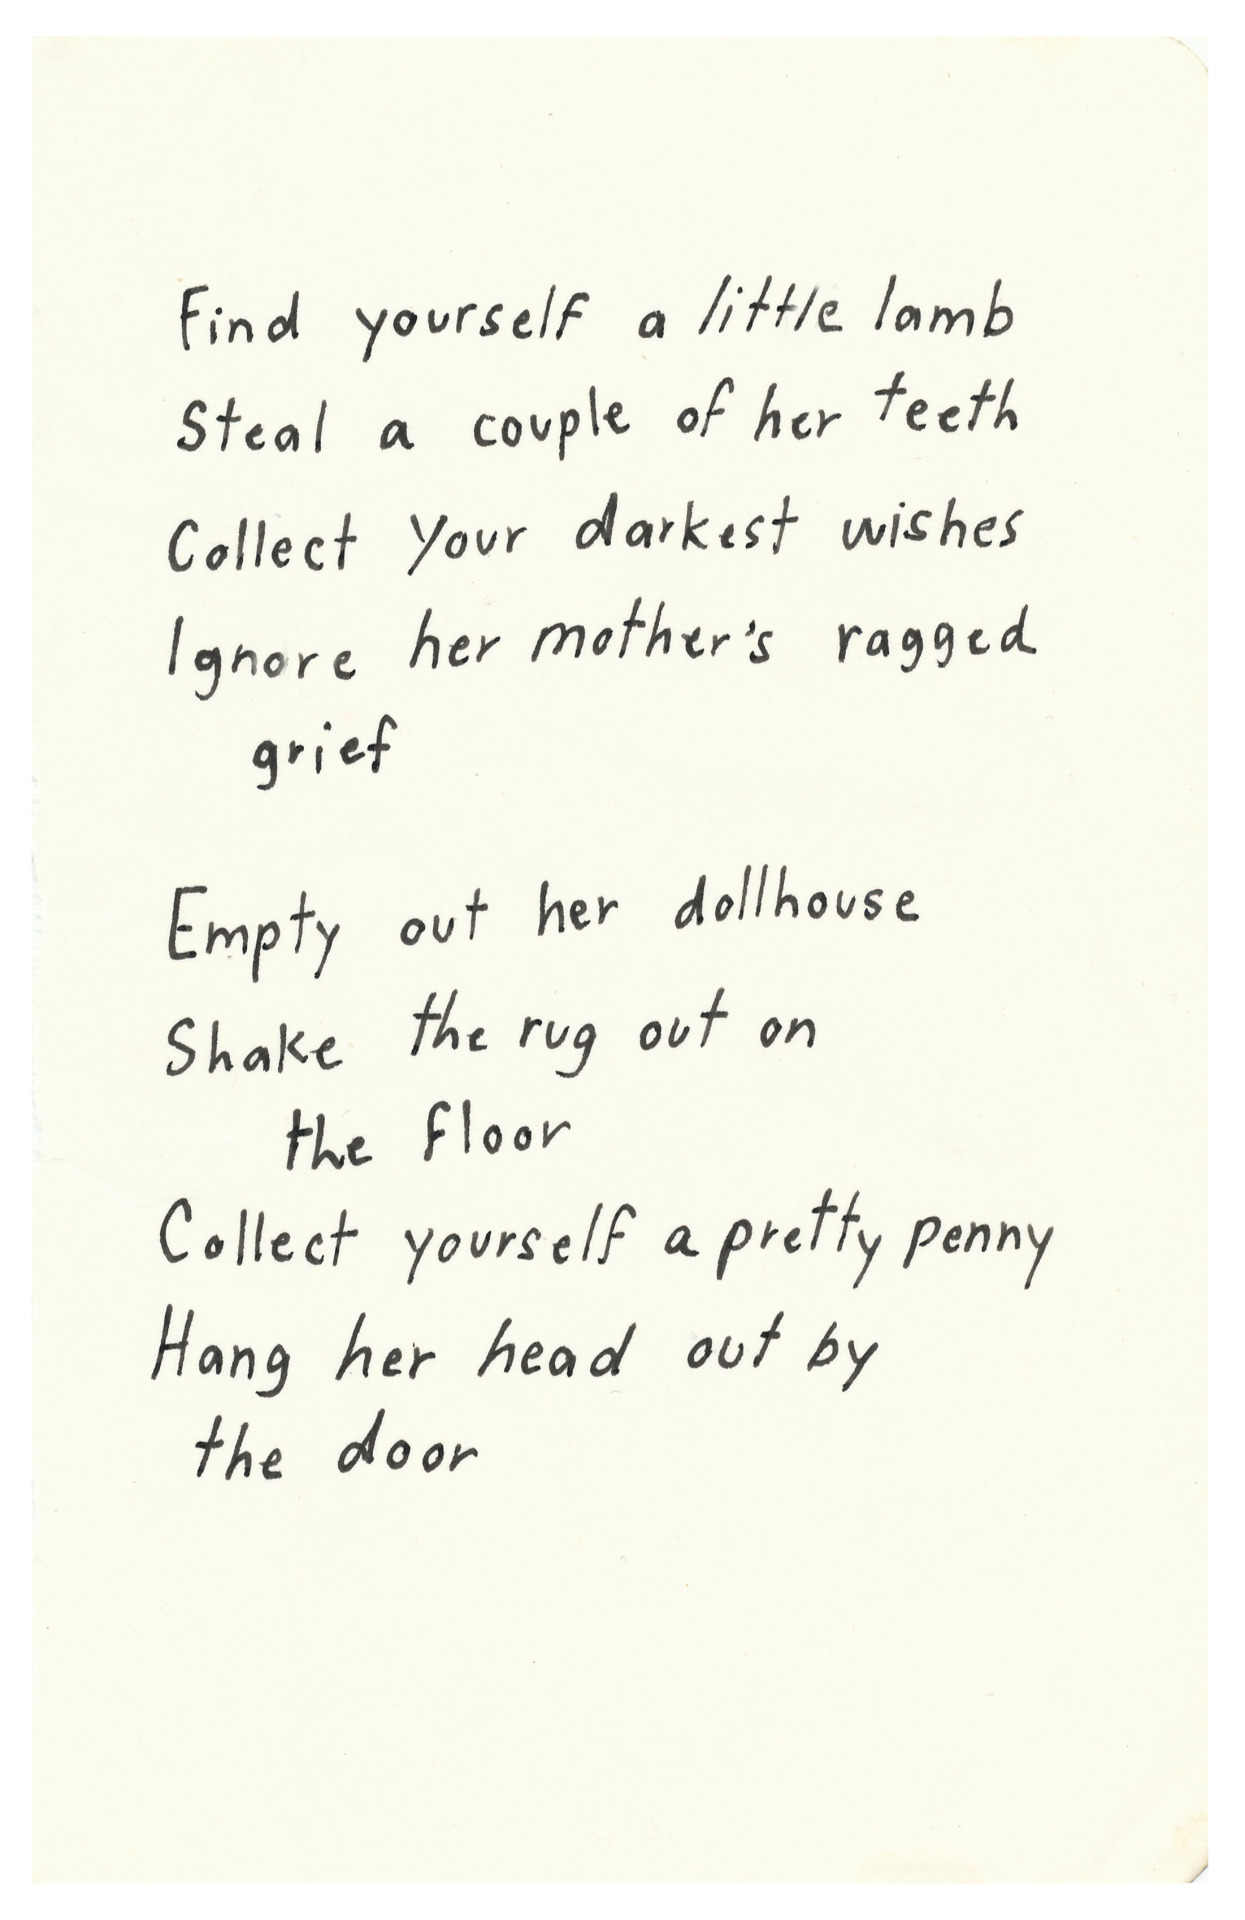 Find yourself a little lamb
Steal a couple of her teeth
Collect your darkest wishes
Ignore her mother's ragged
grief
Empty out her dollhouse
Shake the rug out on
the floor
Collect yourself a pretty penny
Hang her head out by
the door